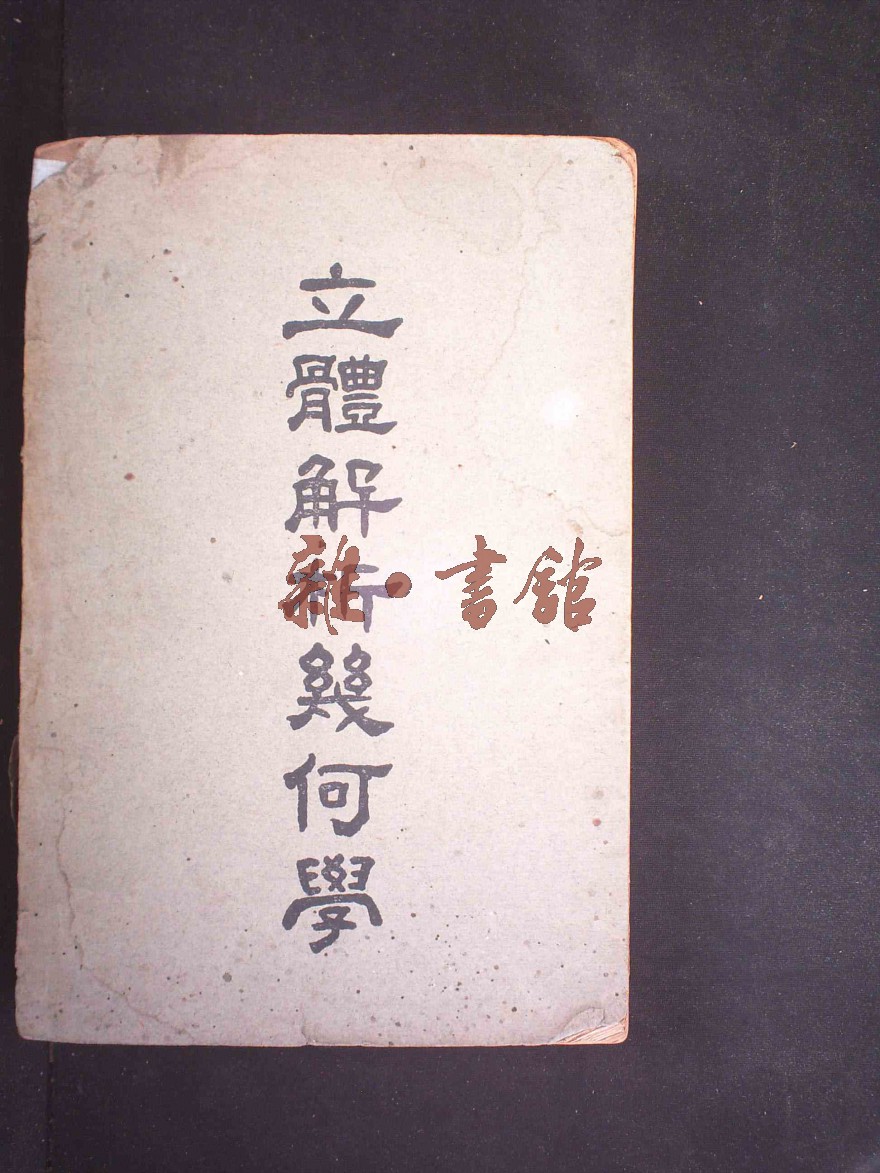 立體解析幾何學
雜·書舘